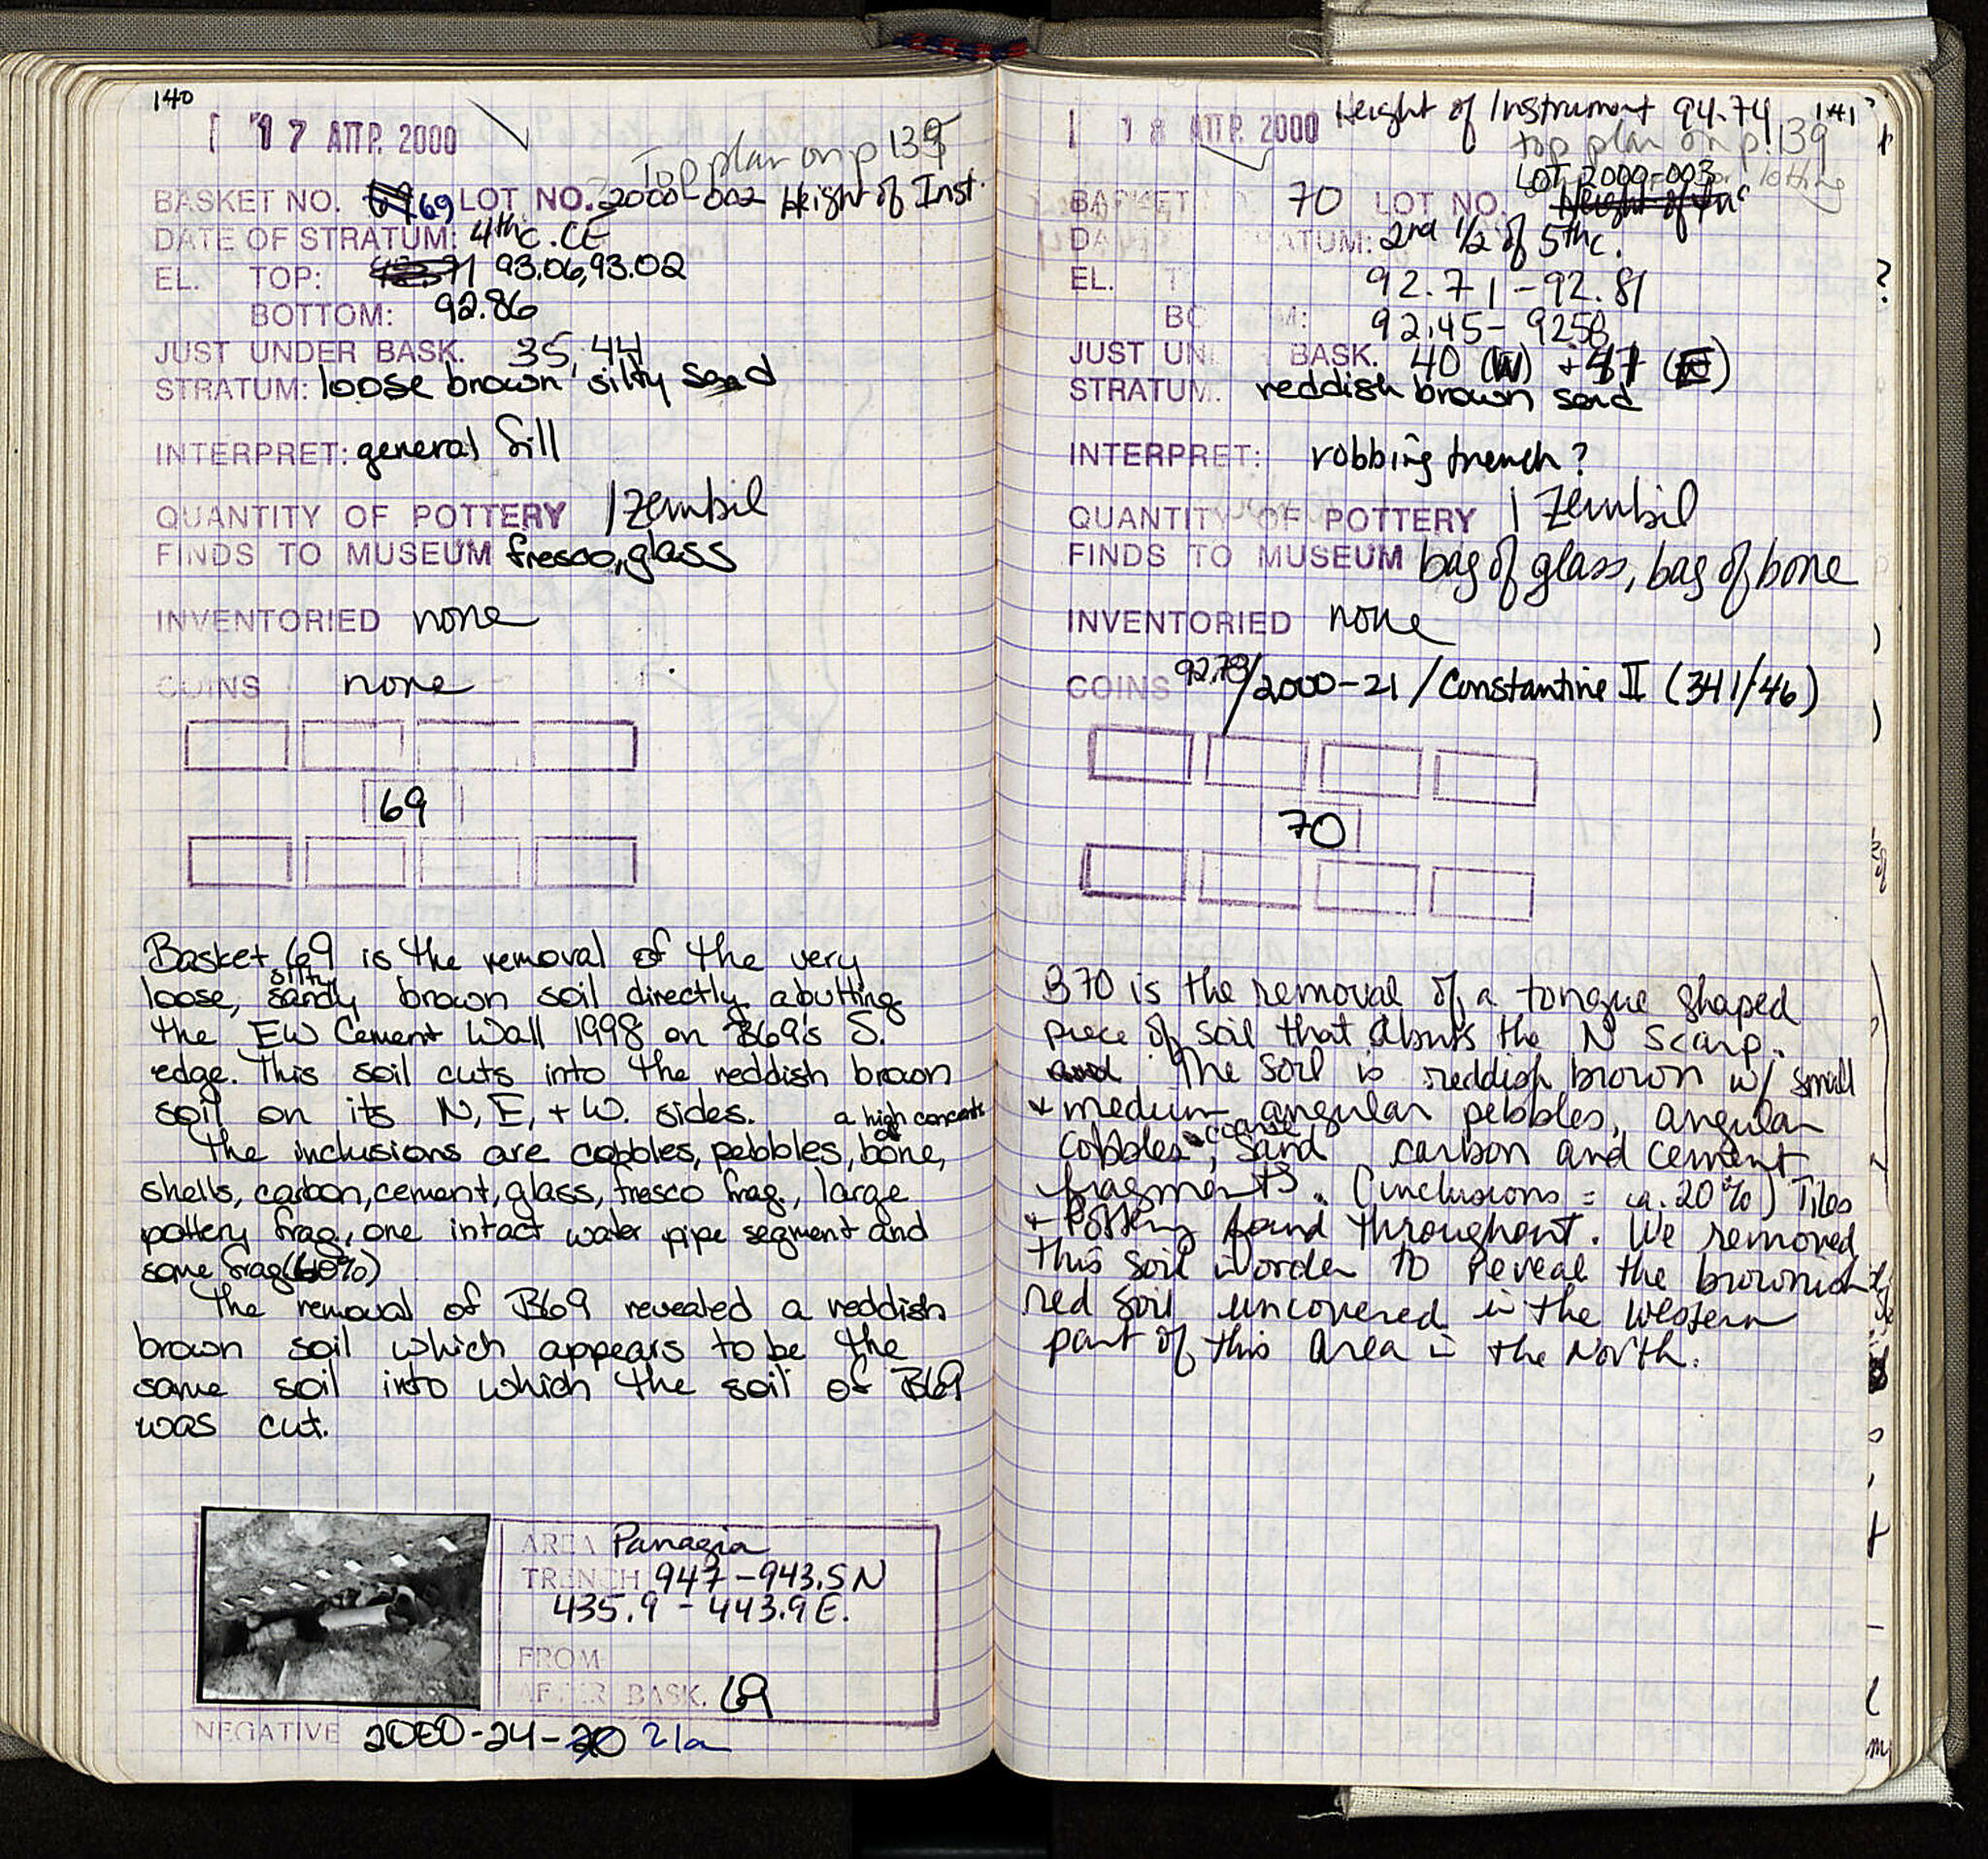 140
17 ΑΠΡ. 2000
Top plan on p 139
BASKET NO. 69 LOT NO. 2000-002 Height of Inst.
DATE OF STRATUM: 4th c. CE
EL. TOP: 93.06, 93.02
BOTTOM: 92.86
JUST UNDER BASK. 35, 44
STRATUM: loose brown silty sand
INTERPRET: general fill
QUANTITY OF POTTERY 1 Zembil
FINDS TO MUSEUM fresco, glass
INVENTORIED none
COINS none
69
Basket 69 is the removal of the very
loose, silty sandy brown soil directly abutting
the EW Cement Wall 1998 on B69's S.
edge. This soil cuts into the reddish brown
soil on its N, E, + W. sides.
The inclusions are cobbles, pebbles, a high concent. of bone,
shells, carbon, cement, glass, fresco frag., large
pottery frag., one intact water pipe segment and
some frag (60%)
The removal of B69 revealed a reddish
brown soil which appears to be the
same soil into which the soil of B69
was cut.
AREA Panagia
TRENCH 947-943.5N
435.9-443.9E.
FROM
AFTER BASK. 69
NEGATIVE 2000-24-20 21a
Height of Instrument 94.74 141
18 ΑΠΡ. 2000
top plan on p. 139
LOT 2000-003
lotting
BASKET 70 LOT NO.
DA ATUM: 2nd 1/2 of 5th c.
EL. T 92.71-92.81
BO M: 92.45-9258
JUST UN BASK. 40 (W) + 47 (E)
STRATUM. reddish brown sand
INTERPRET: robbing trench?
QUANTITY OF POTTERY 1 Zembil
FINDS TO MUSEUM bag of glass, bag of bone
INVENTORIED none
COINS 92.78/2000-21/Constantine II (341/46)
70
B70 is the removal of a tongue shaped
piece of soil that abuts the N Scarp.
The soil is reddish brown w/ small
+ medium angular pebbles, angular
cobbles, coarse sand carbon and cement
fragments. (inclusions = ca. 20%) Tiles
+ Pottery found throughout. We removed
this soil in order to reveal the brownish
red soil uncovered in the western
part of this area in the North.